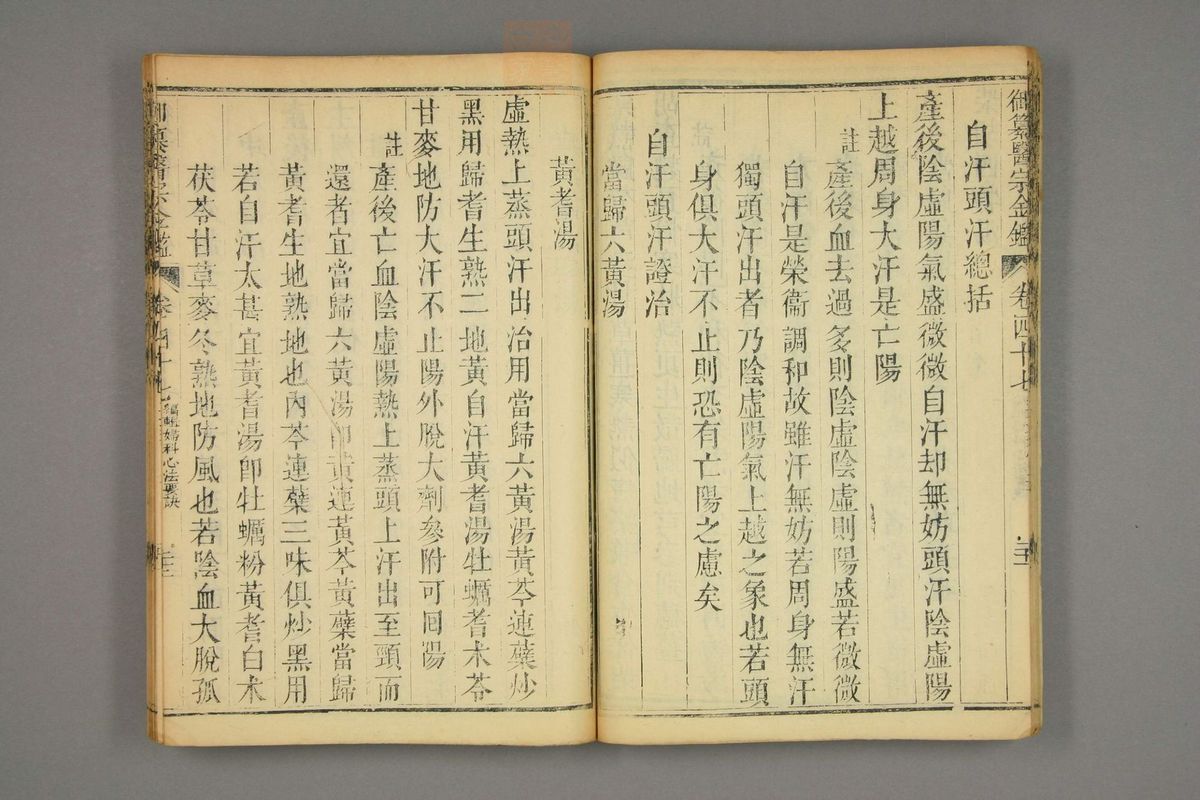 御纂醫宗金鑑 卷四十七
自汗頭汗總括
產後陰虛陽氣盛微微自汗却無妨頭汗陰虛陽
上越周身大汗是亡陽
註產後血去過多則陰虛陰虛則陽盛若微微
自汗是榮衞調和故雖汗無妨若周身無汗
獨頭汗出者乃陰虛陽氣上越之象也若頭
身俱大汗不止則恐有亡陽之慮矣
自汗頭汗證治
當歸六黃湯
黃耆湯
虛熱上蒸頭汗出治用當歸六黃湯黃芩連蘗炒
黑用歸耆生熟二地黃自汗黃耆湯牡蠣耆朮苓
甘麥地防大汗不止陽外脫大劑參附可囘陽
註產後亡血陰虛陽熱上蒸頭上汗出至頸而
還者宜當歸六黃湯卽黃連黃芩黃蘗當歸
黃耆生地熟地也內芩連蘗三味俱炒黑用
若自汗太甚宜黃耆湯卽牡蠣粉黃耆白朮
茯苓甘草麥冬熟地防風也若陰血大脫孤
御纂醫宗金鑑 卷四十七 編輯婦科心法要訣